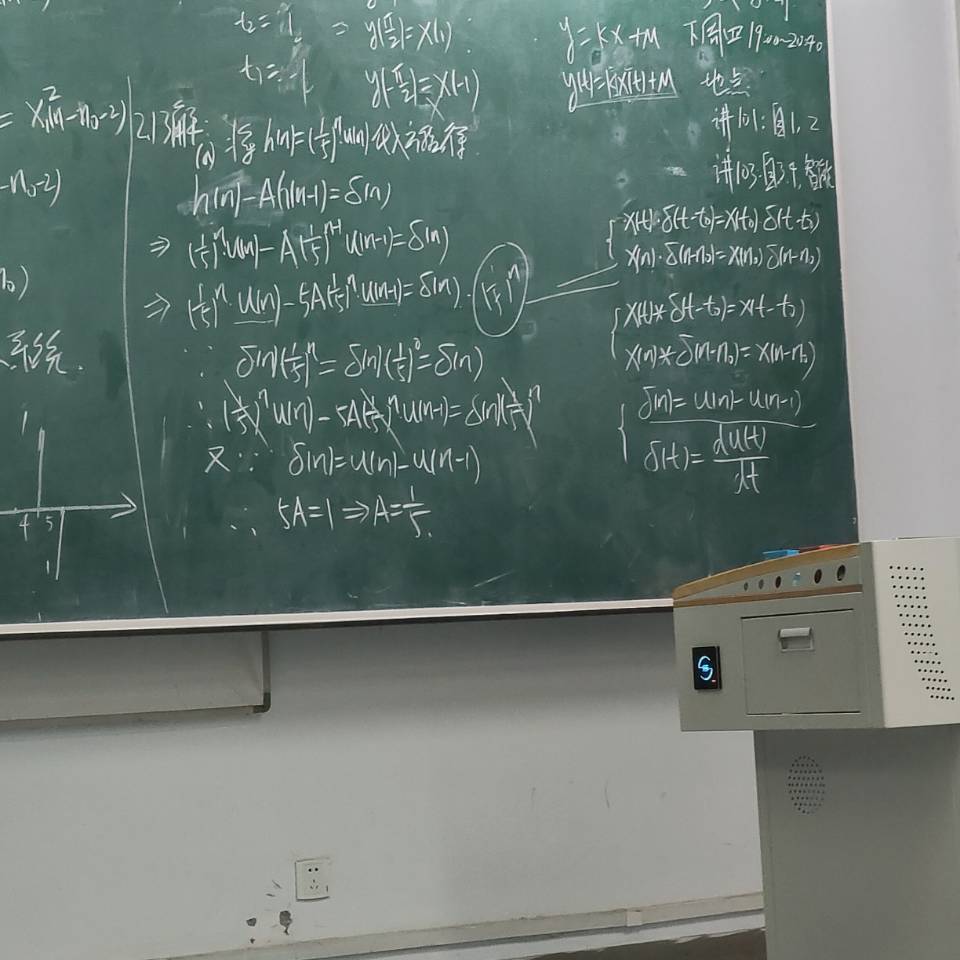 t₂=1 ⇒ y(π/2)=x(1)
t₁=-1 y(-π/2)=x(-1)
= x₁²(n-n₀-2)
-n₀-2)
n₀)
系统.
4 5
2.13解:
(a): 将 h(n)=(1/5)ⁿ·u(n)代入方程得
h(n)-Ah(n-1)=δ(n)
⇒ (1/5)ⁿu(n)-A(1/5)ⁿ⁻¹u(n-1)=δ(n)
⇒ (1/5)ⁿ·u(n)-5A(1/5)ⁿ·u(n-1)=δ(n). (1/5)ⁿ
∵ δ(n)(1/5)ⁿ=δ(n)(1/5)⁰=δ(n)
∴ (1/5)ⁿu(n)-5A(1/5)ⁿu(n-1)=δ(n)(1/5)ⁿ
又∵ δ(n)=u(n)-u(n-1)
∴ 5A=1⇒A=1/5.
y=kx+M
y(t)=kx(t)+M
下周四19:00~20:40
地点
讲101:自1,2
讲103:自3.4,智能
x(t)·δ(t-t₀)=x(t₀)δ(t-t₀)
x(n)·δ(n-n₀)=x(n₀)δ(n-n₀)
x(t)*δ(t-t₀)=x(t-t₀)
x(n)*δ(n-n₀)=x(n-n₀)
δ(n)=u(n)-u(n-1)
δ(t)=du(t)/dt